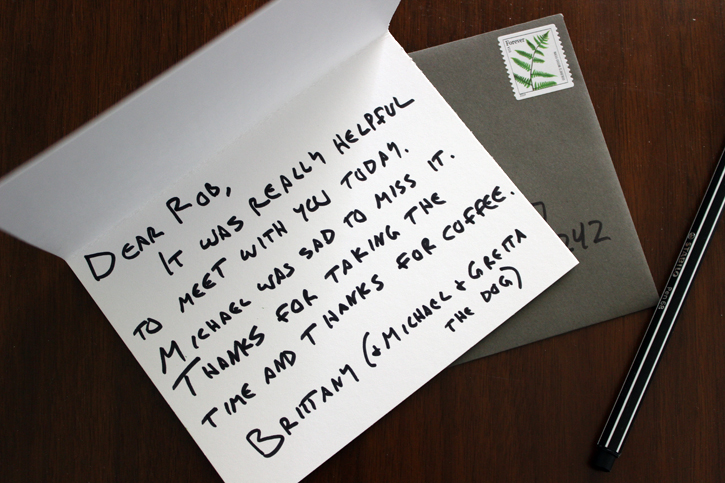 DEAR ROB,
IT WAS REALLY HELPFUL
TO MEET WITH YOU TODAY.
MICHAEL WAS SAD TO MISS IT.
THANKS FOR TAKING THE
TIME AND THANKS FOR COFFEE.
BRITTANY (+ MICHAEL + GRETTA
THE DOG)
Forever